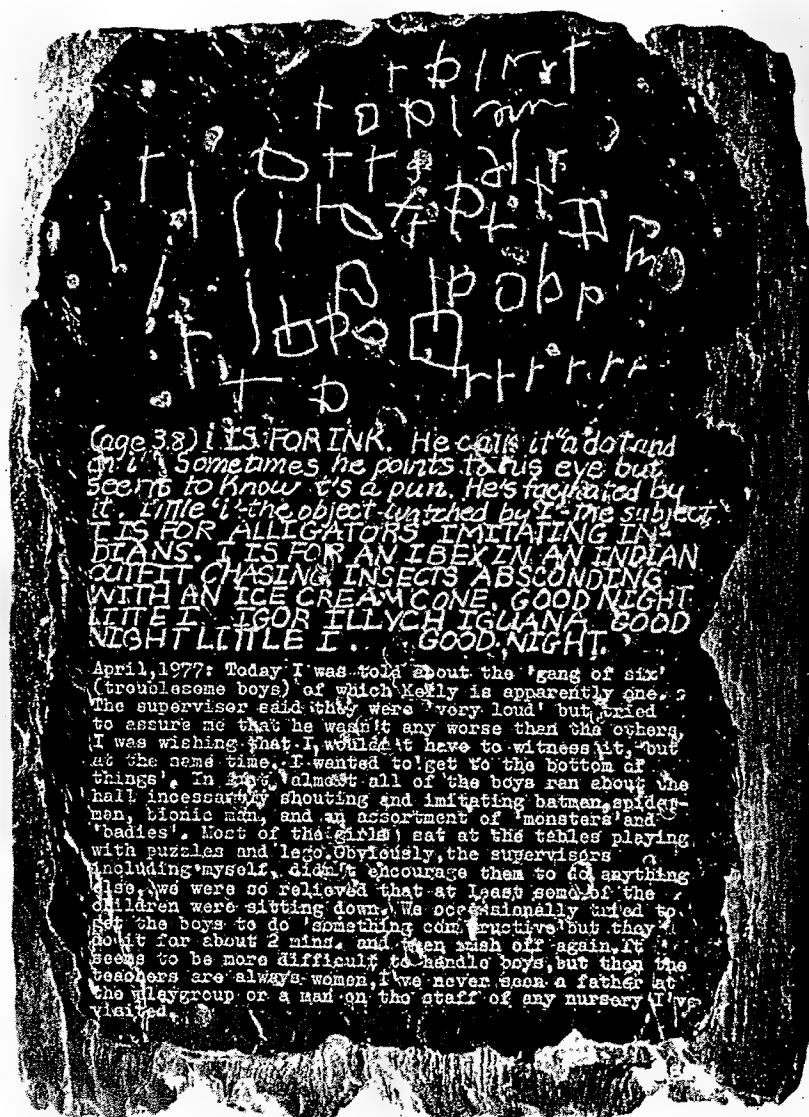 r b l r r T
t o p l
(age 3.8) i IS FOR INK. He calls it "a dot and
an i". Sometimes he points to his eye but
seems to Know t's a pun. He's facinated by
it. Little 'i'-the object-watched by I-the subject.
I IS FOR ALLIGATORS IMITATING IN-
DIANS. I IS FOR AN IBEX IN AN INDIAN
OUTFIT CHASING INSECTS ABSCONDING
WITH AN ICE CREAM CONE. GOOD NIGHT
LITTLE I. IGOR ILLYCH IGUANA GOOD
NIGHT LITTLE I... GOOD NIGHT.
April,1977: Today I was told about the 'gang of six'
(troublesome boys) of which Kelly is apparently one.
The supervisor said they were 'very loud' but tried
to assure me that he wasn't any worse than the others.
I was wishing that I wouldn't have to witness it, but
at the same time, I wanted to'get to the bottom of
things'. In fact, almost all of the boys ran about the
hall incessantly shouting and imitating batman,spider-
man, bionic man, and an assortment of 'monsters'and
'badies'. Most of the girls sat at the tables playing
with puzzles and lego.Obviously,the supervisors
including myself, didn't encourage them to do anything
else, we were so relieved that at least some of the
children were sitting down. We occassionally tried to
get the boys to do 'something constructive'but they
do it for about 2 mins. and then rush off again.It
seems to be more difficult to handle boys,but then the
teachers are always women,I've never seen a father at
the playgroup or a man on the staff of any nursery I've
visited.